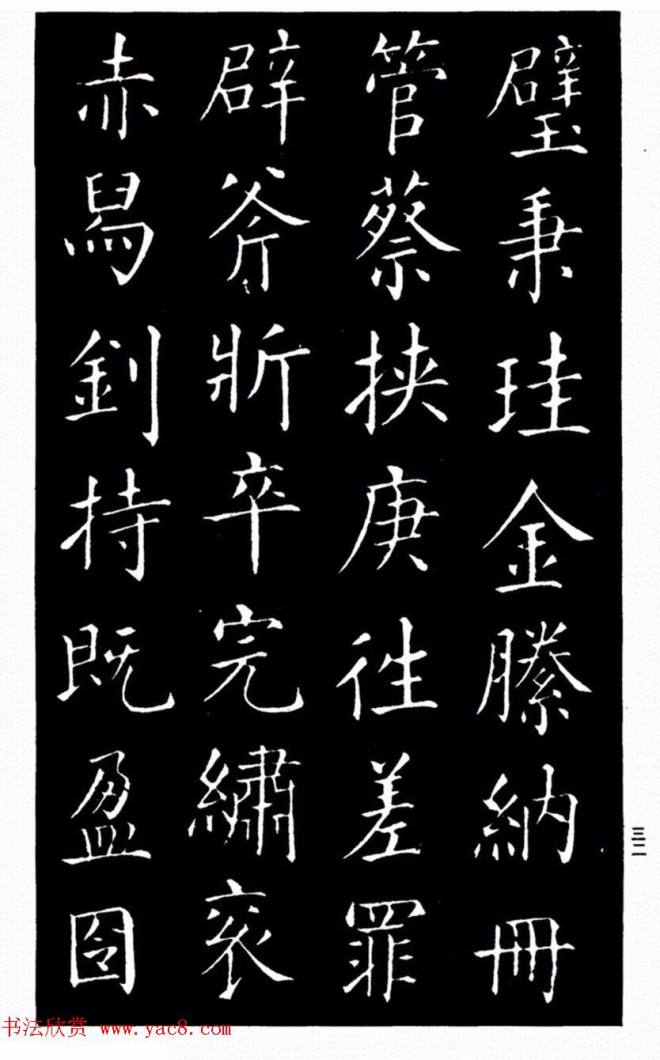 璧秉珪金縢納冊
管蔡挟庚徃差罪
辟斧斨卒完繡衮
赤舄釗持既盈囹
三二
书法欣赏 www.yac8.com